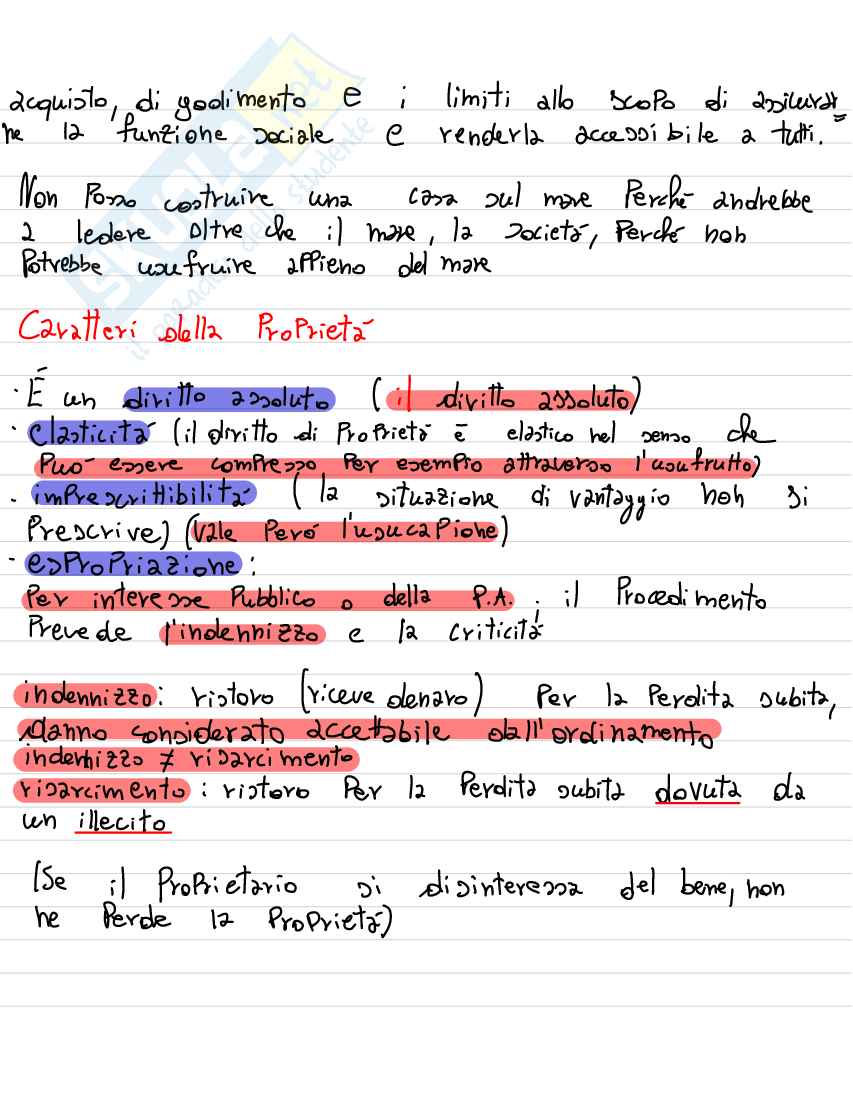 acquisto, di godimento e i limiti allo scopo di assicurar=
ne la funzione sociale e renderla accessibile a tutti.
Non Posso costruire una casa sul mare Perché andrebbe
a ledere oltre che il mare, la società, Perché non
Potrebbe usufruire appieno del mare
Caratteri della Proprietà
· É un diritto assoluto (il diritto assoluto)
· elasticità (il diritto di Proprietà è elastico nel senso che
Può essere compresso Per esempio attraverso l'usufrutto)
· imprescrittibilità (la situazione di vantaggio non si
Prescrive) (Vale Però l'usucapione)
· espropriazione:
Per interesse Pubblico o della P.A. ; il Procedimento
Prevede l'indennizzo e la criticità
indennizzo: ristoro (riceve denaro) Per la Perdita subita,
danno considerato accettabile dall'ordinamento
indennizzo ≠ risarcimento
risarcimento: ristoro Per la Perdita subita dovuta da
un illecito
(Se il Proprietario si disinteressa del bene, non
ne Perde la Proprietà)
SKUOLA.net
il paradiso dello studente